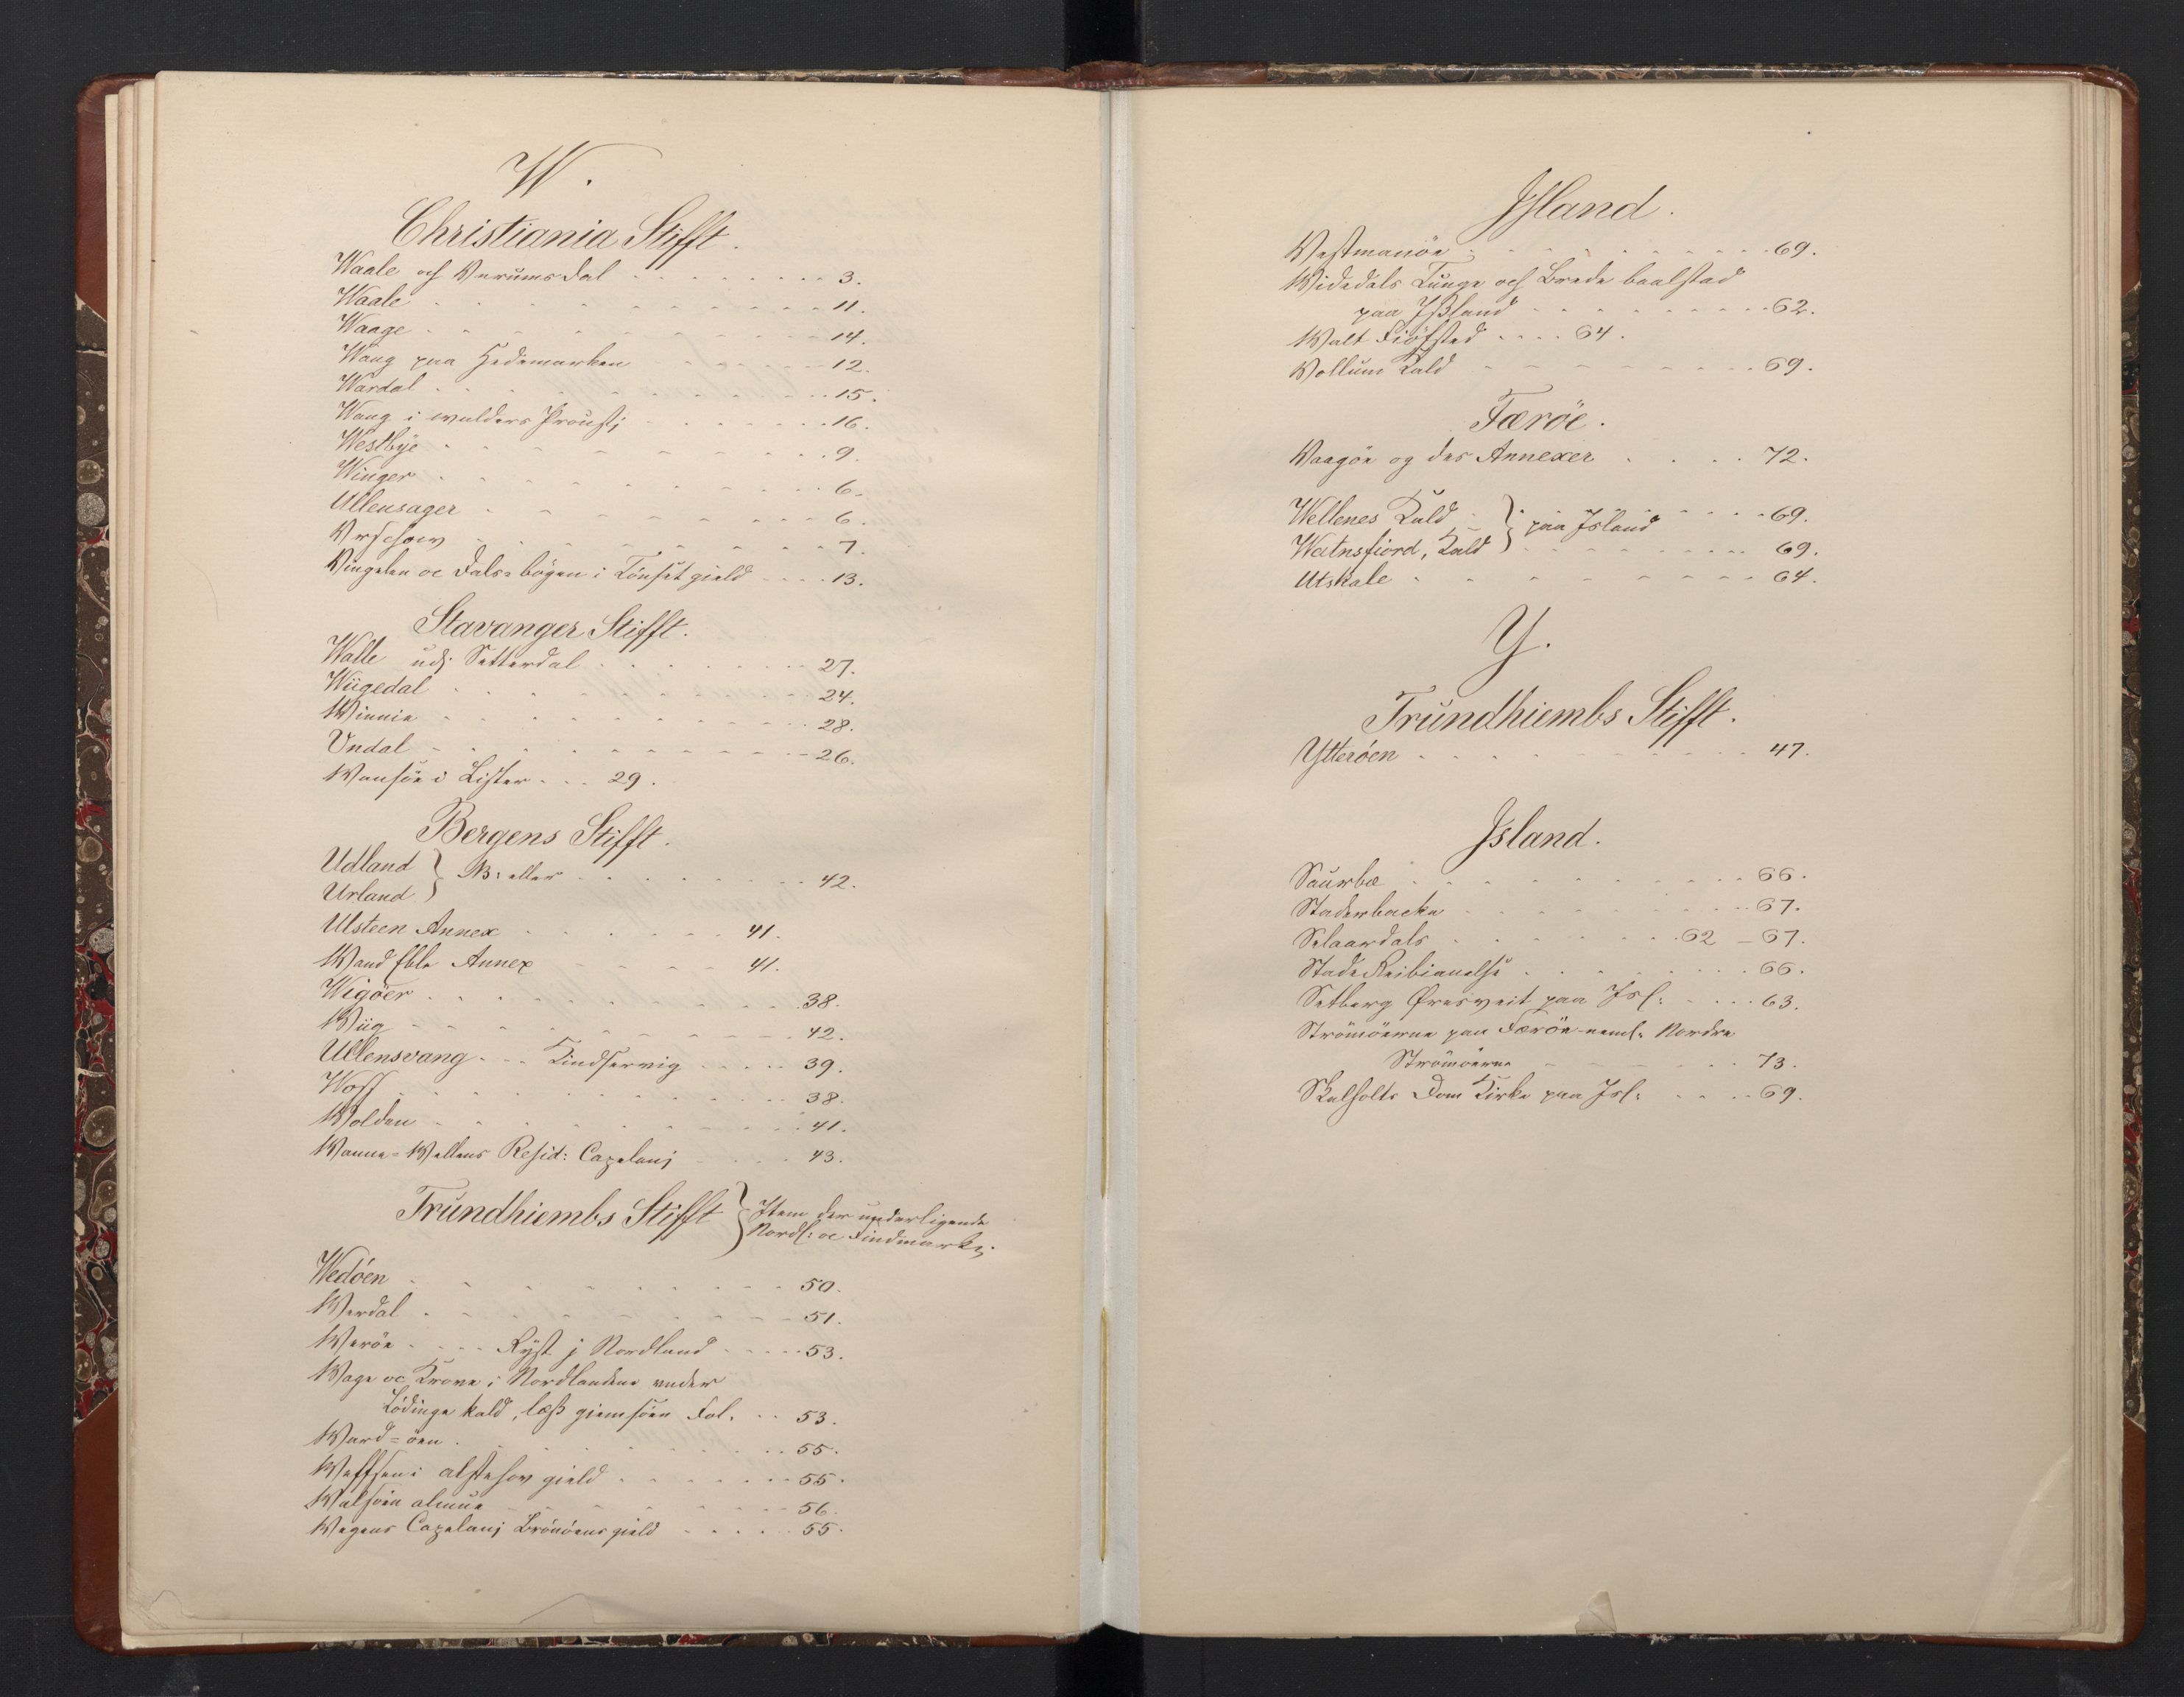 W.
Christiania Stifft.
Waale och Verumsdal 3.
Waale 11.
Waage 14.
Wang paa Hedemarken 12.
Wardal 15.
Wang i walders Proustj 16.
Westbÿe 9.
Winger 6.
Ullensager 6.
Vrschow 7.
Vingelen oc Dals-bögen i Tönset gield 13.
Stavanger Stifft.
Walle udj Setterdal 27.
Wügedal 24.
Winnie 28.
Undal 26.
Wansöe i Lister 29.
Bergens Stifft.
Udland } NB: eller 42.
Urland
Ulsteen Annex 41.
Wand Annex 41.
Wigöer 38.
Wiig 42.
Ullensvang - - Kindservig 39.
Woss 38.
Wolden 41.
Wanne-Wellens Resid: Capelanj 43.
Trundhiembs Stifft } Item der underligende
Nordl: oc Findmarken.
Wedöen 50.
Werdal 51.
Weröe Ryst j Nordland 53.
Wage oc Krone i Nordlandene under
Lödinge kald, læß giemsöen Fol. 53.
Ward=öen 55.
Weffsen i alstahow gield 55.
Walsöen almue 56.
Wegens Capelanj Brönöens gield 55.
Jsland.
Westmanöe 69.
Widedals Tunge och Brede baalstad
paa Jßland 62.
Walt Fiöfsted 64.
Vollum Kald 69.
Færöe.
Waagöe og des Annexer 72.
Wellenes Kald } paa Jsland 69.
Watnsfiord, Kald 69.
Utskale 64.
Y.
Trundhiembs Stifft.
Ytteröen 47.
Jsland.
Saurbæ 66.
Staderbacke 67.
Selaardals 62 - 67.
Stade Reibianelse 66.
Setberg Öresveit paa Jsl: 63.
Strömöerne paa Færöe neml: Nordre
Strömöerne 73.
Skalholts Dom Kirke paa Jsl: 69.